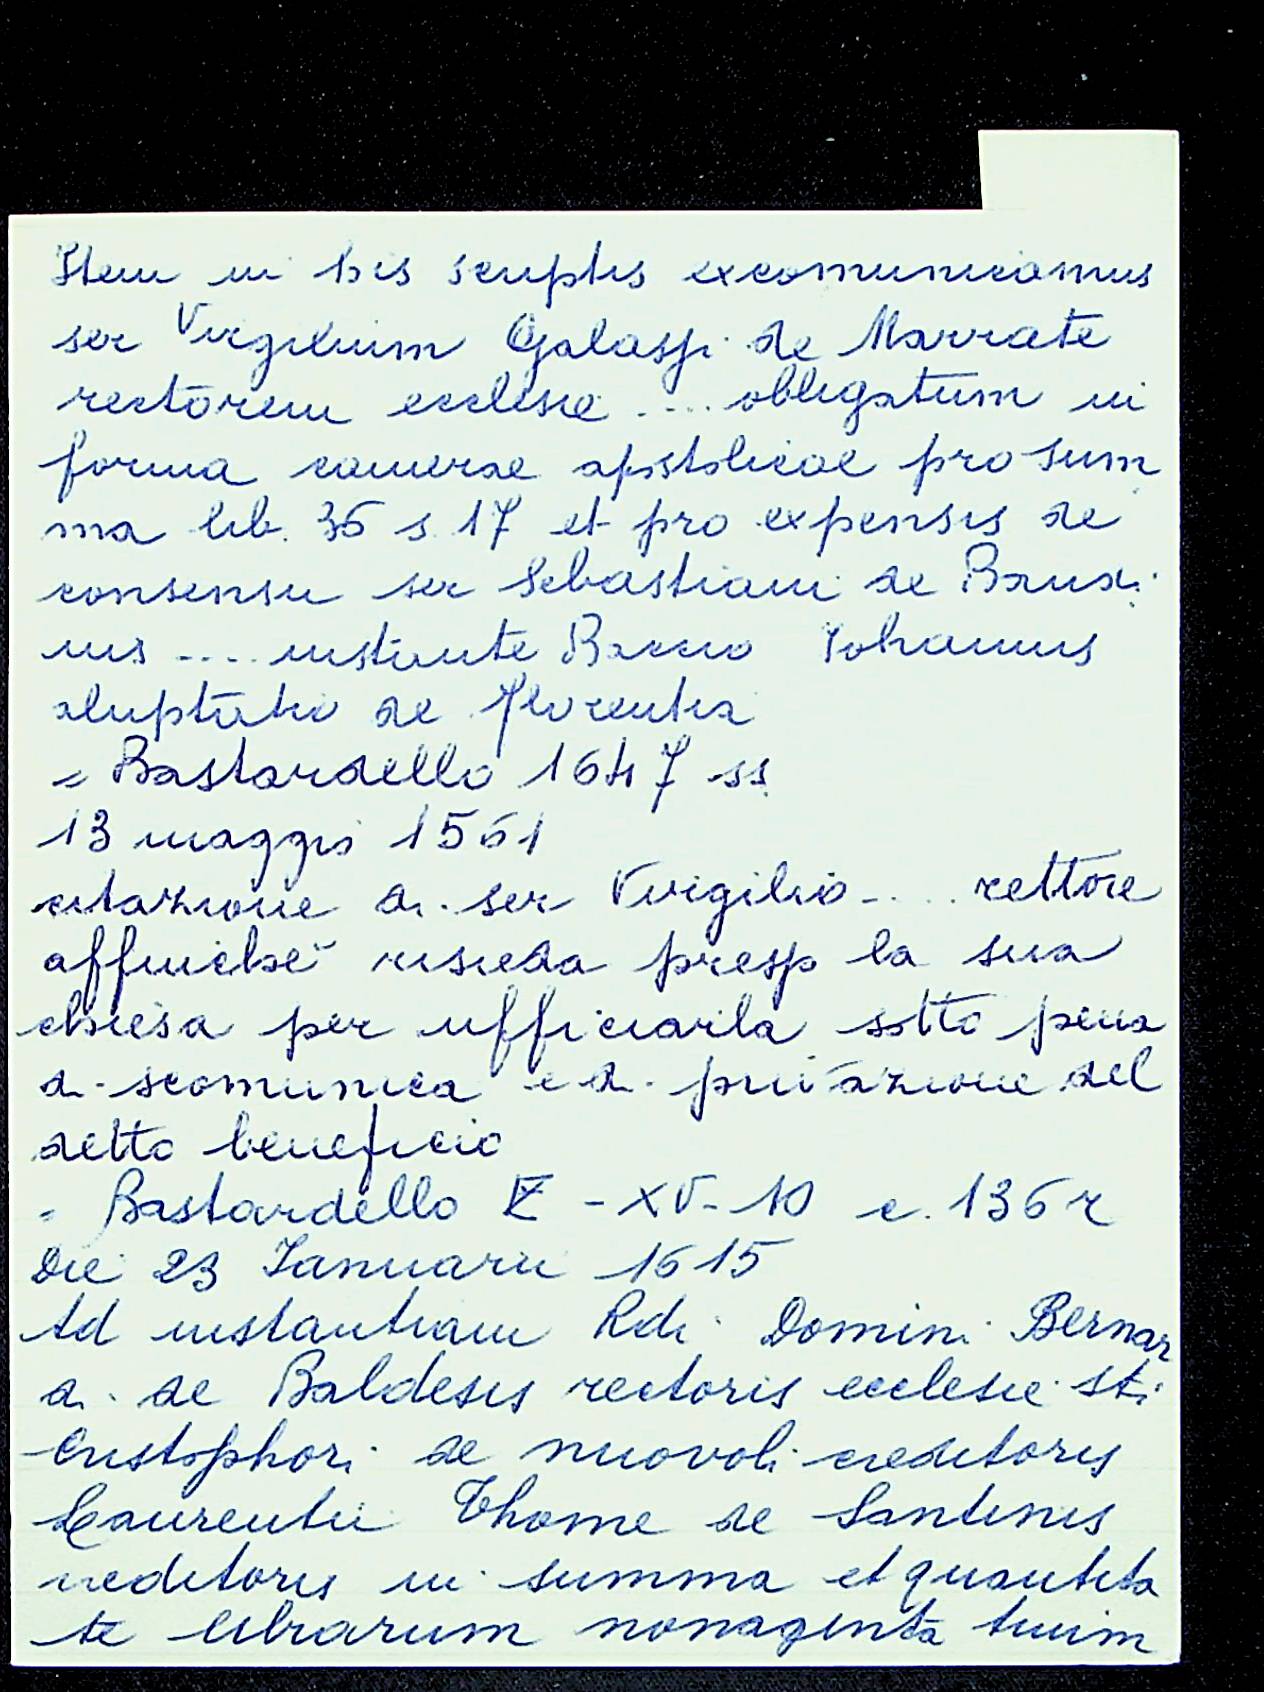 Item in his scriptis excomunicamus
ser Virgilium Galassi de Marrate
rectorem ecclesie .... obligatum in
forma camerae apostolicae pro sum
ma lib. 36 s. 17 et pro expensis de
consensu ser Sebastiani de Bandi
nis .... instante Baccio Iohannis
de Florentia
= Bastardello 1647 ss
13 maggio 1561
citazione di ser Virgilio .... rettore
affinchè risieda presso la sua
chiesa per ufficiarla sotto pena
di scomunica e di privazione del
detto beneficio
= Bastardello - XV - 10 c. 136 r
Die 23 Ianuarii 1615
Ad instantiam Rdi Domini Bernar
di de Baldesis rectoris ecclesie sti
Cristophori de nuovoli creditoris
Laurentii Thome de Santinis
creditoris in summa et quantita
te librarum nonaginta trium